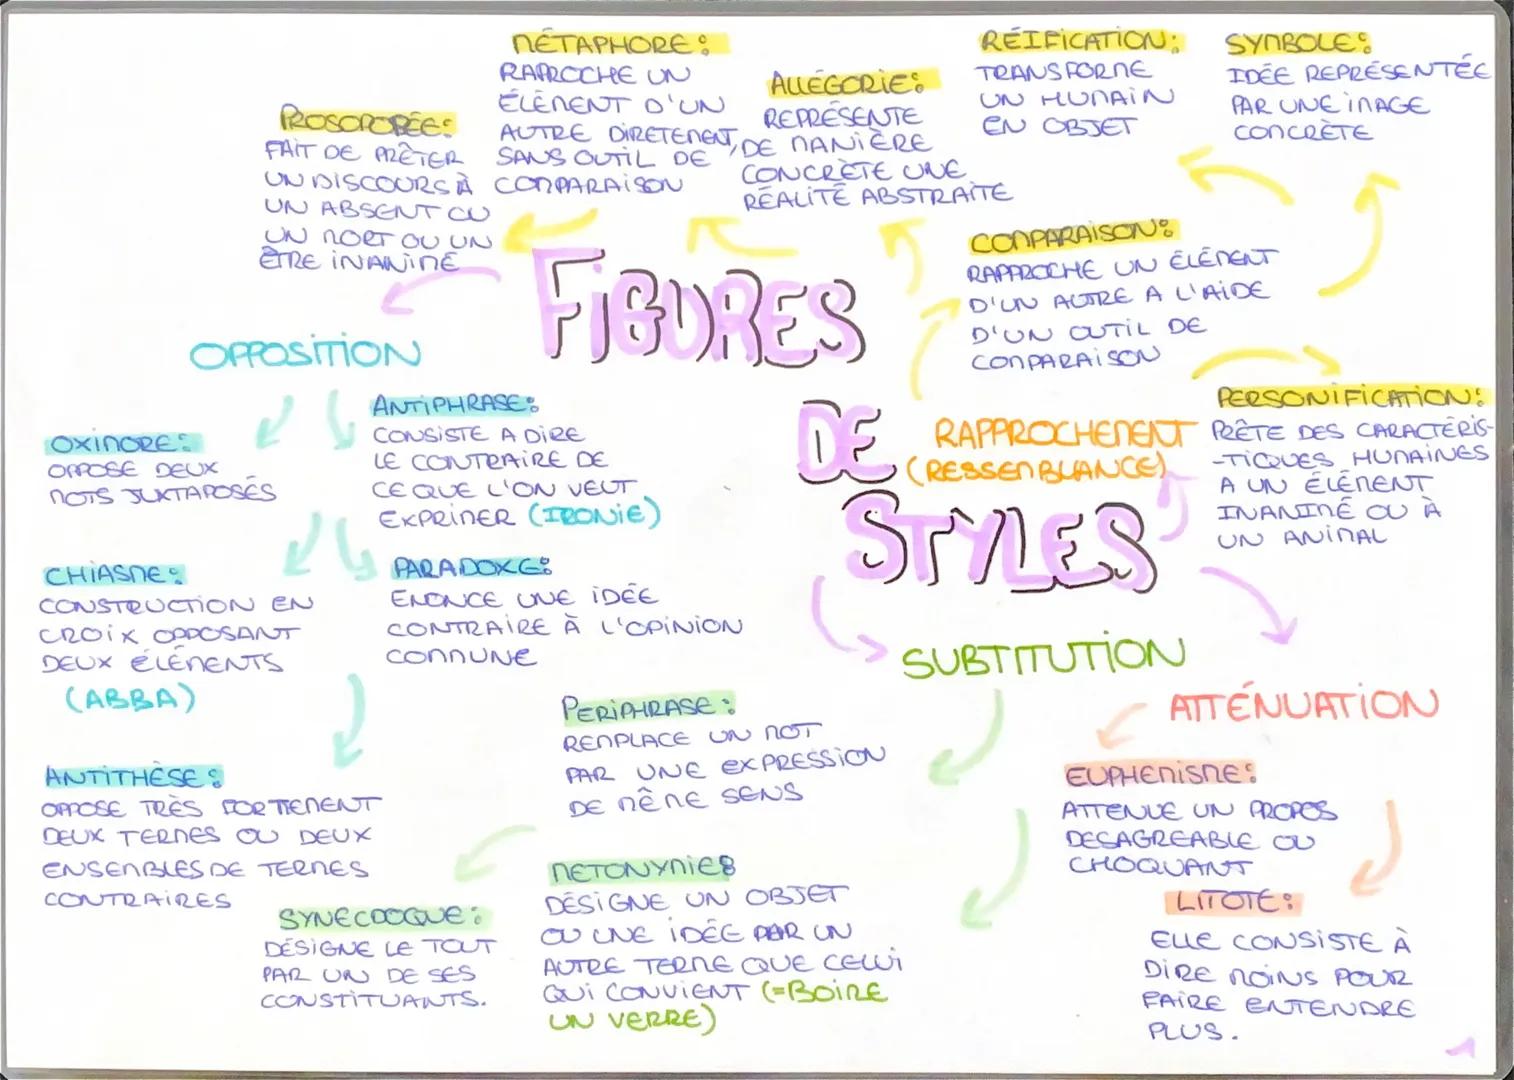 FIGURES
DE
STYLES
PROSOPOPÉE:
FAIT DE PRÊTER
UN DISCOURS À
UN ABSENT OU
UN MORT OU UN
ÊTRE INANIMÉ
MÉTAPHORE:
RAPROCHE UN
ÉLÉMENT D'UN
AUTRE DIRETEMENT,
SANS OUTIL DE
COMPARAISON
ALLÉGORIE:
REPRÉSENTE
DE MANIÈRE
CONCRÈTE UNE
RÉALITÉ ABSTRAITE
RÉIFICATION:
TRANSFORME
UN HUMAIN
EN OBJET
SYMBOLE:
IDÉE REPRÉSENTÉE
PAR UNE IMAGE
CONCRÈTE
COMPARAISON:
RAPPROCHE UN ÉLÉMENT
D'UN AUTRE A L'AIDE
D'UN OUTIL DE
COMPARAISON
RAPPROCHEMENT
(RESSEMBLANCE)
PERSONIFICATION:
PRÊTE DES CARACTÉRIS-
-TIQUES HUMAINES
A UN ÉLÉMENT
INANIMÉ OU À
UN ANIMAL
OPPOSITION
OXIMORE:
OPPOSE DEUX
MOTS JUXTAPOSÉS
ANTIPHRASE:
CONSISTE A DIRE
LE CONTRAIRE DE
CE QUE L'ON VEUT
EXPRIMER (IRONIE)
CHIASME:
CONSTRUCTION EN
CROIX OPPOSANT
DEUX ÉLÉMENTS
(ABBA)
PARADOXE:
ENONCE UNE IDÉE
CONTRAIRE À L'OPINION
COMMUNE
ANTITHÈSE:
OPPOSE TRÈS FORTEMENT
DEUX TERMES OU DEUX
ENSEMBLES DE TERMES
CONTRAIRES
SUBTITUTION
PERIPHRASE:
REMPLACE UN MOT
PAR UNE EXPRESSION
DE MÊME SENS
SYNECDOQUE:
DÉSIGNE LE TOUT
PAR UN DE SES
CONSTITUANTS.
METONYMIE:
DÉSIGNE UN OBJET
OU UNE IDÉE PAR UN
AUTRE TERME QUE CELUI
QUI CONVIENT (=BOIRE
UN VERRE)
ATTÉNUATION
EUPHEMISME:
ATTENUE UN PROPOS
DESAGREABLE OU
CHOQUANT
LITOTE:
ELLE CONSISTE À
DIRE MOINS POUR
FAIRE ENTENDRE
PLUS.